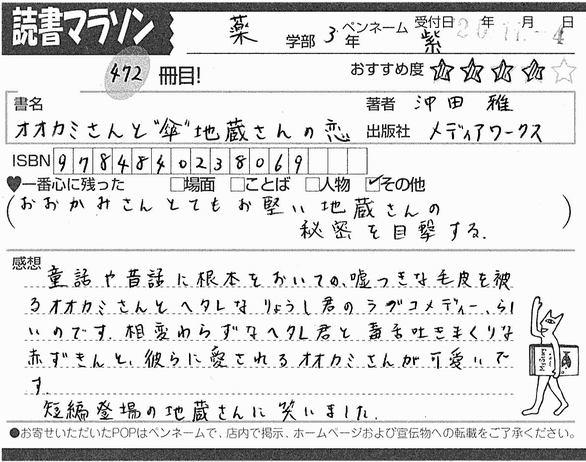 読書マラソン
薬 学部 3年 ペンネーム 紫 受付日 年 月 日
472 冊目! おすすめ度
書名 著者 沖田 雅
オオカミさんと"傘"地蔵さんの恋 出版社 メディアワークス
ISBN 9784840238069
♥一番心に残った □場面 □ことば □人物 ☑その他
(おおかみさんとてもお堅い地蔵さんの
秘密を目撃する。)
感想
童話や昔話に根本をおいての、嘘つきな毛皮を被
るオオカミさんとヘタレなりょうし君のラブコメディー、らし
いのです。相変わらずなヘタレ君と毒舌吐きまくりな
赤ずきんと、彼らに愛されるオオカミさんが可愛いで
す
短編登場の地蔵さんに笑いました。
●お寄せいただいたPOPはペンネームで、店内で掲示、ホームページおよび宣伝物への転載をご了承ください。